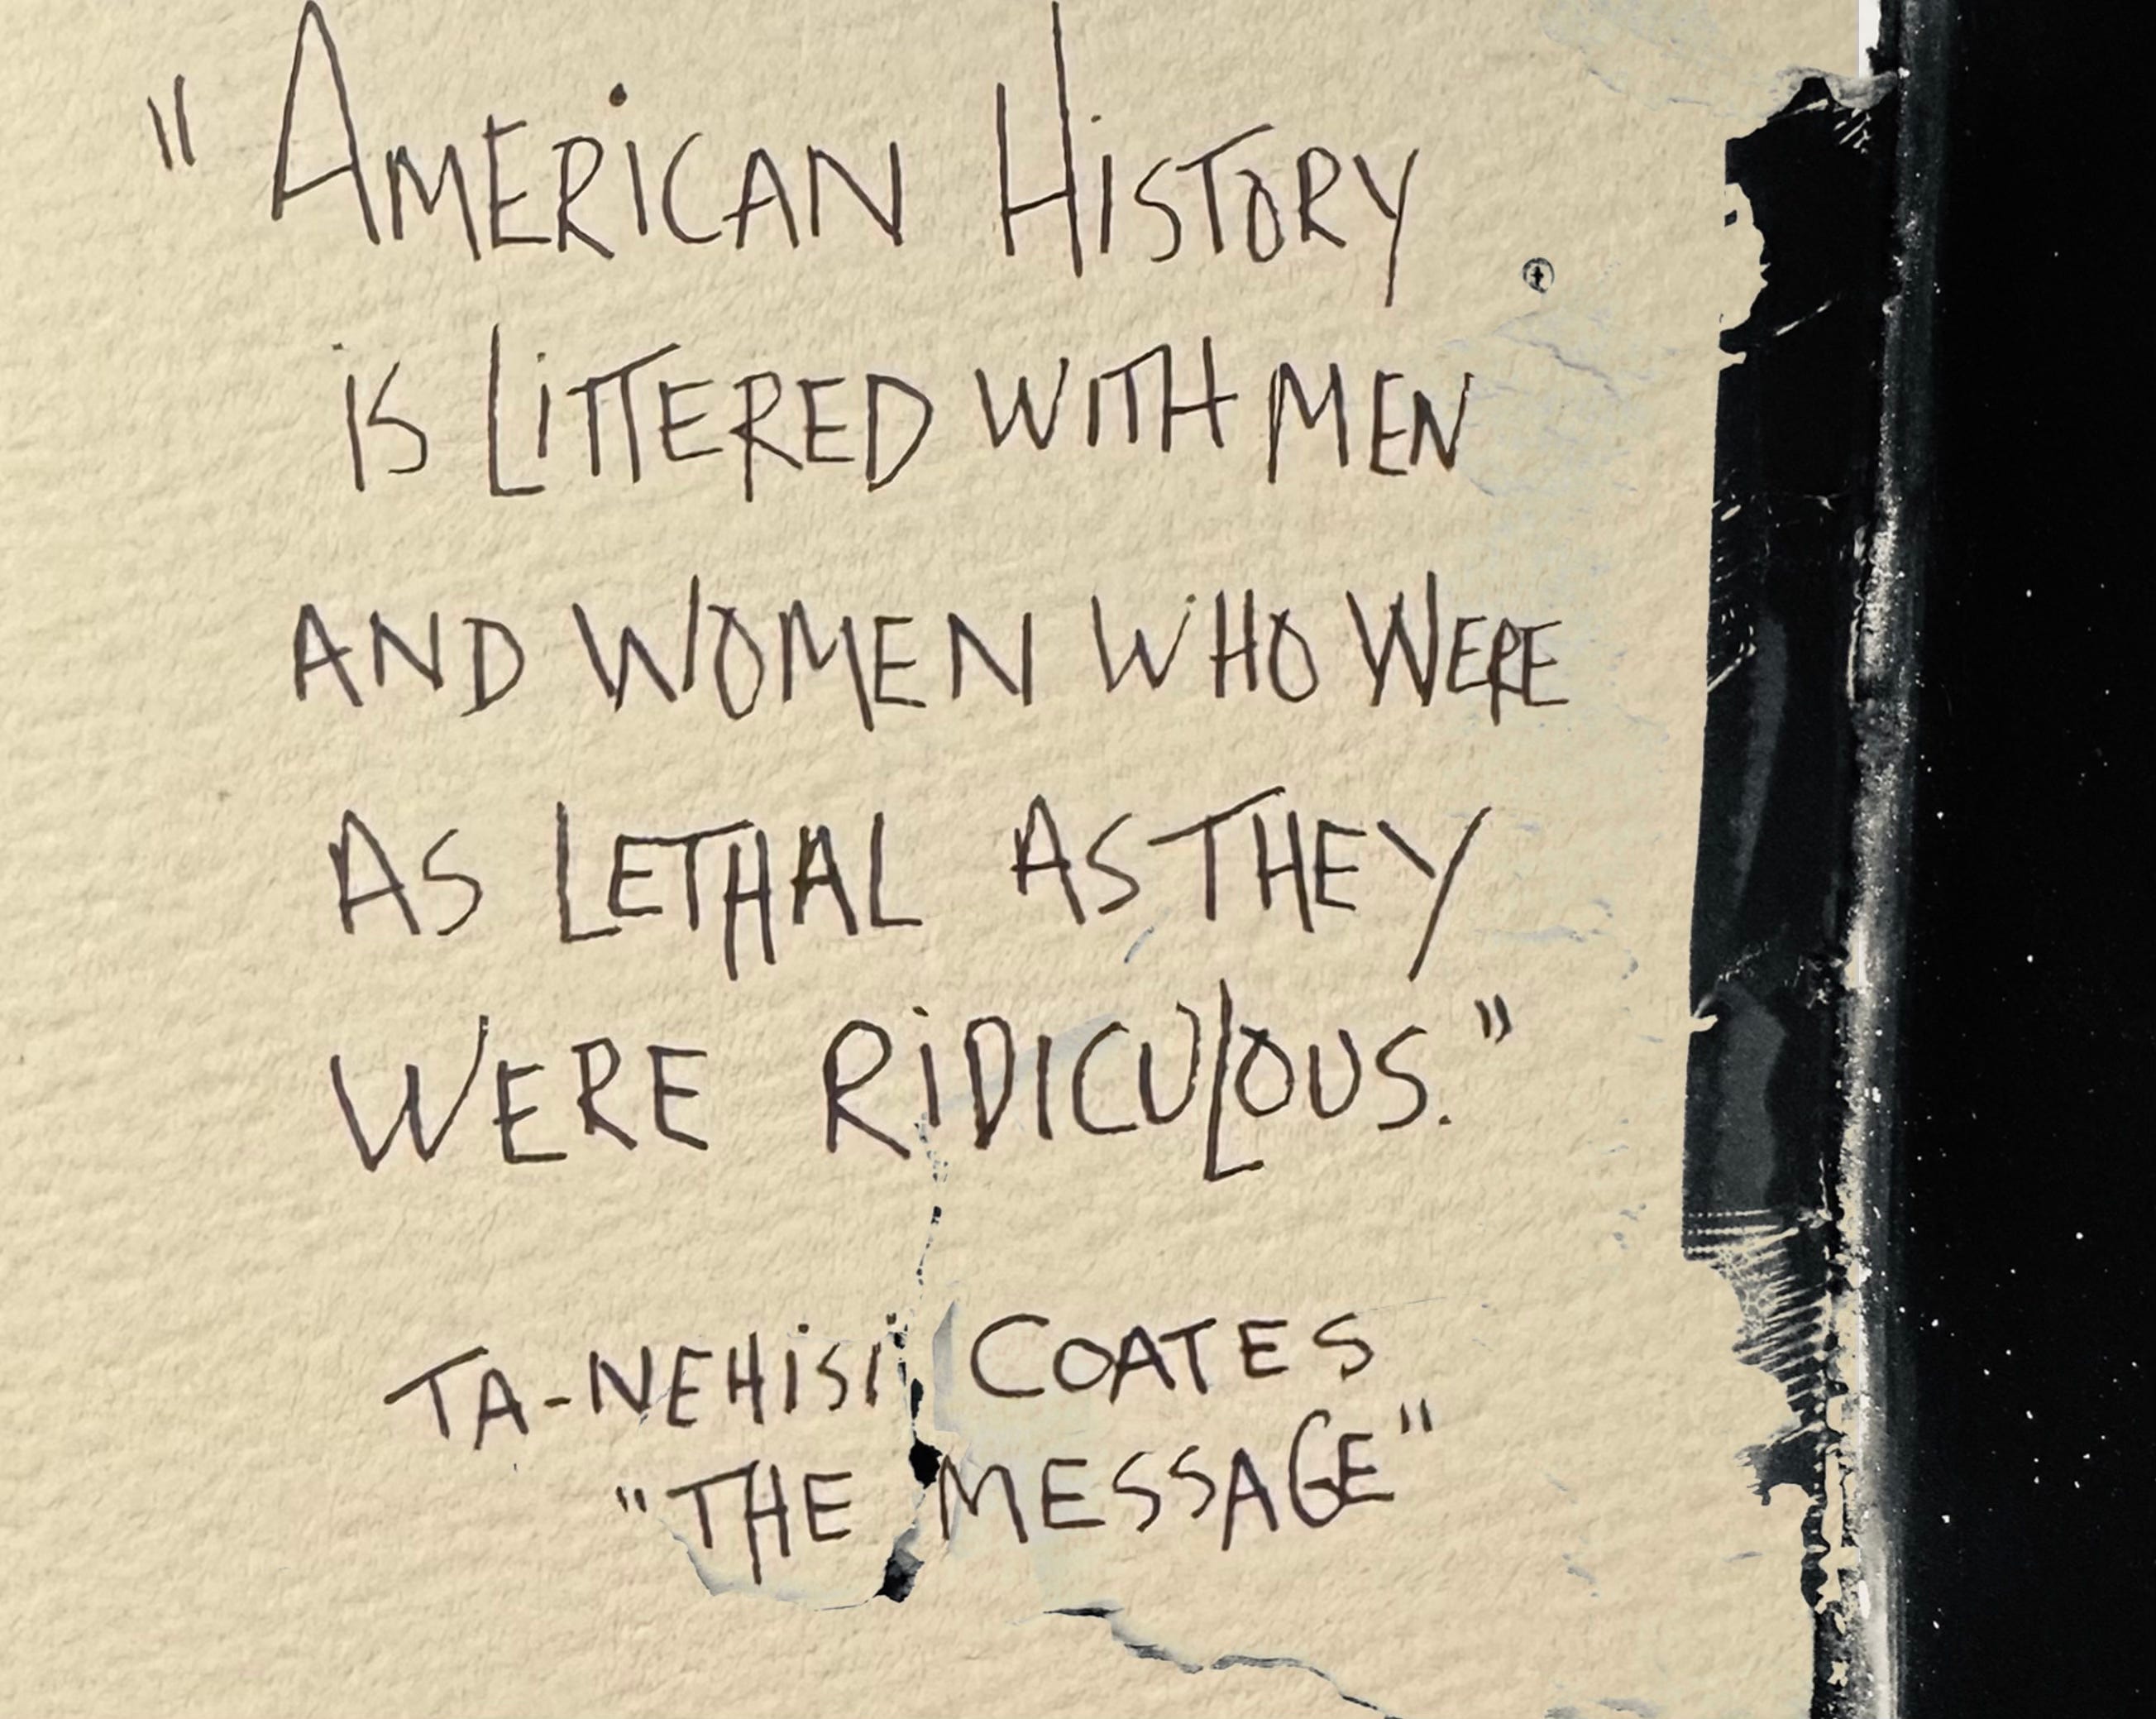 "AMERiCAN HiSTORY
iS LiTTERED WiTH MEN
AND WOMEN WHO WERE
AS LETHAL AS THEY
WERE RiDICULOUS."
TA-NEHiSi COATES
"THE MESSAGE"